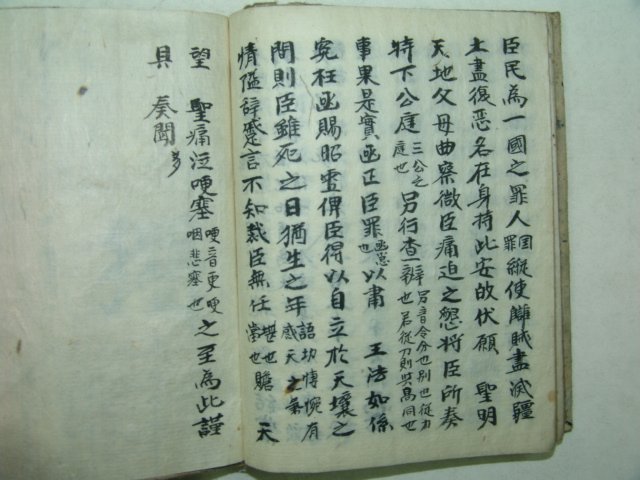 臣民為一國之罪人國罪縱使醜賊盡滅疆
土盡復惡名在身持此安啟伏願　聖明
天地父母曲察微臣痛迫之懇將臣所奏
特下公庭三公之庭也另行查辦另音令分也别也從力也若從刀則與咼同也
事果是實亟正臣罪以肅　王法如係
究枉亟賜昭雪俾臣得以自立於天壤之
間則臣雖死之日猶生之年語切愽惋有感天之氣
情隘辭蹙言不知裁臣無任堪也當也瞻　天
望　聖痛泣哽塞哽音更哽咽悲塞也之至為此謹
具　奏聞